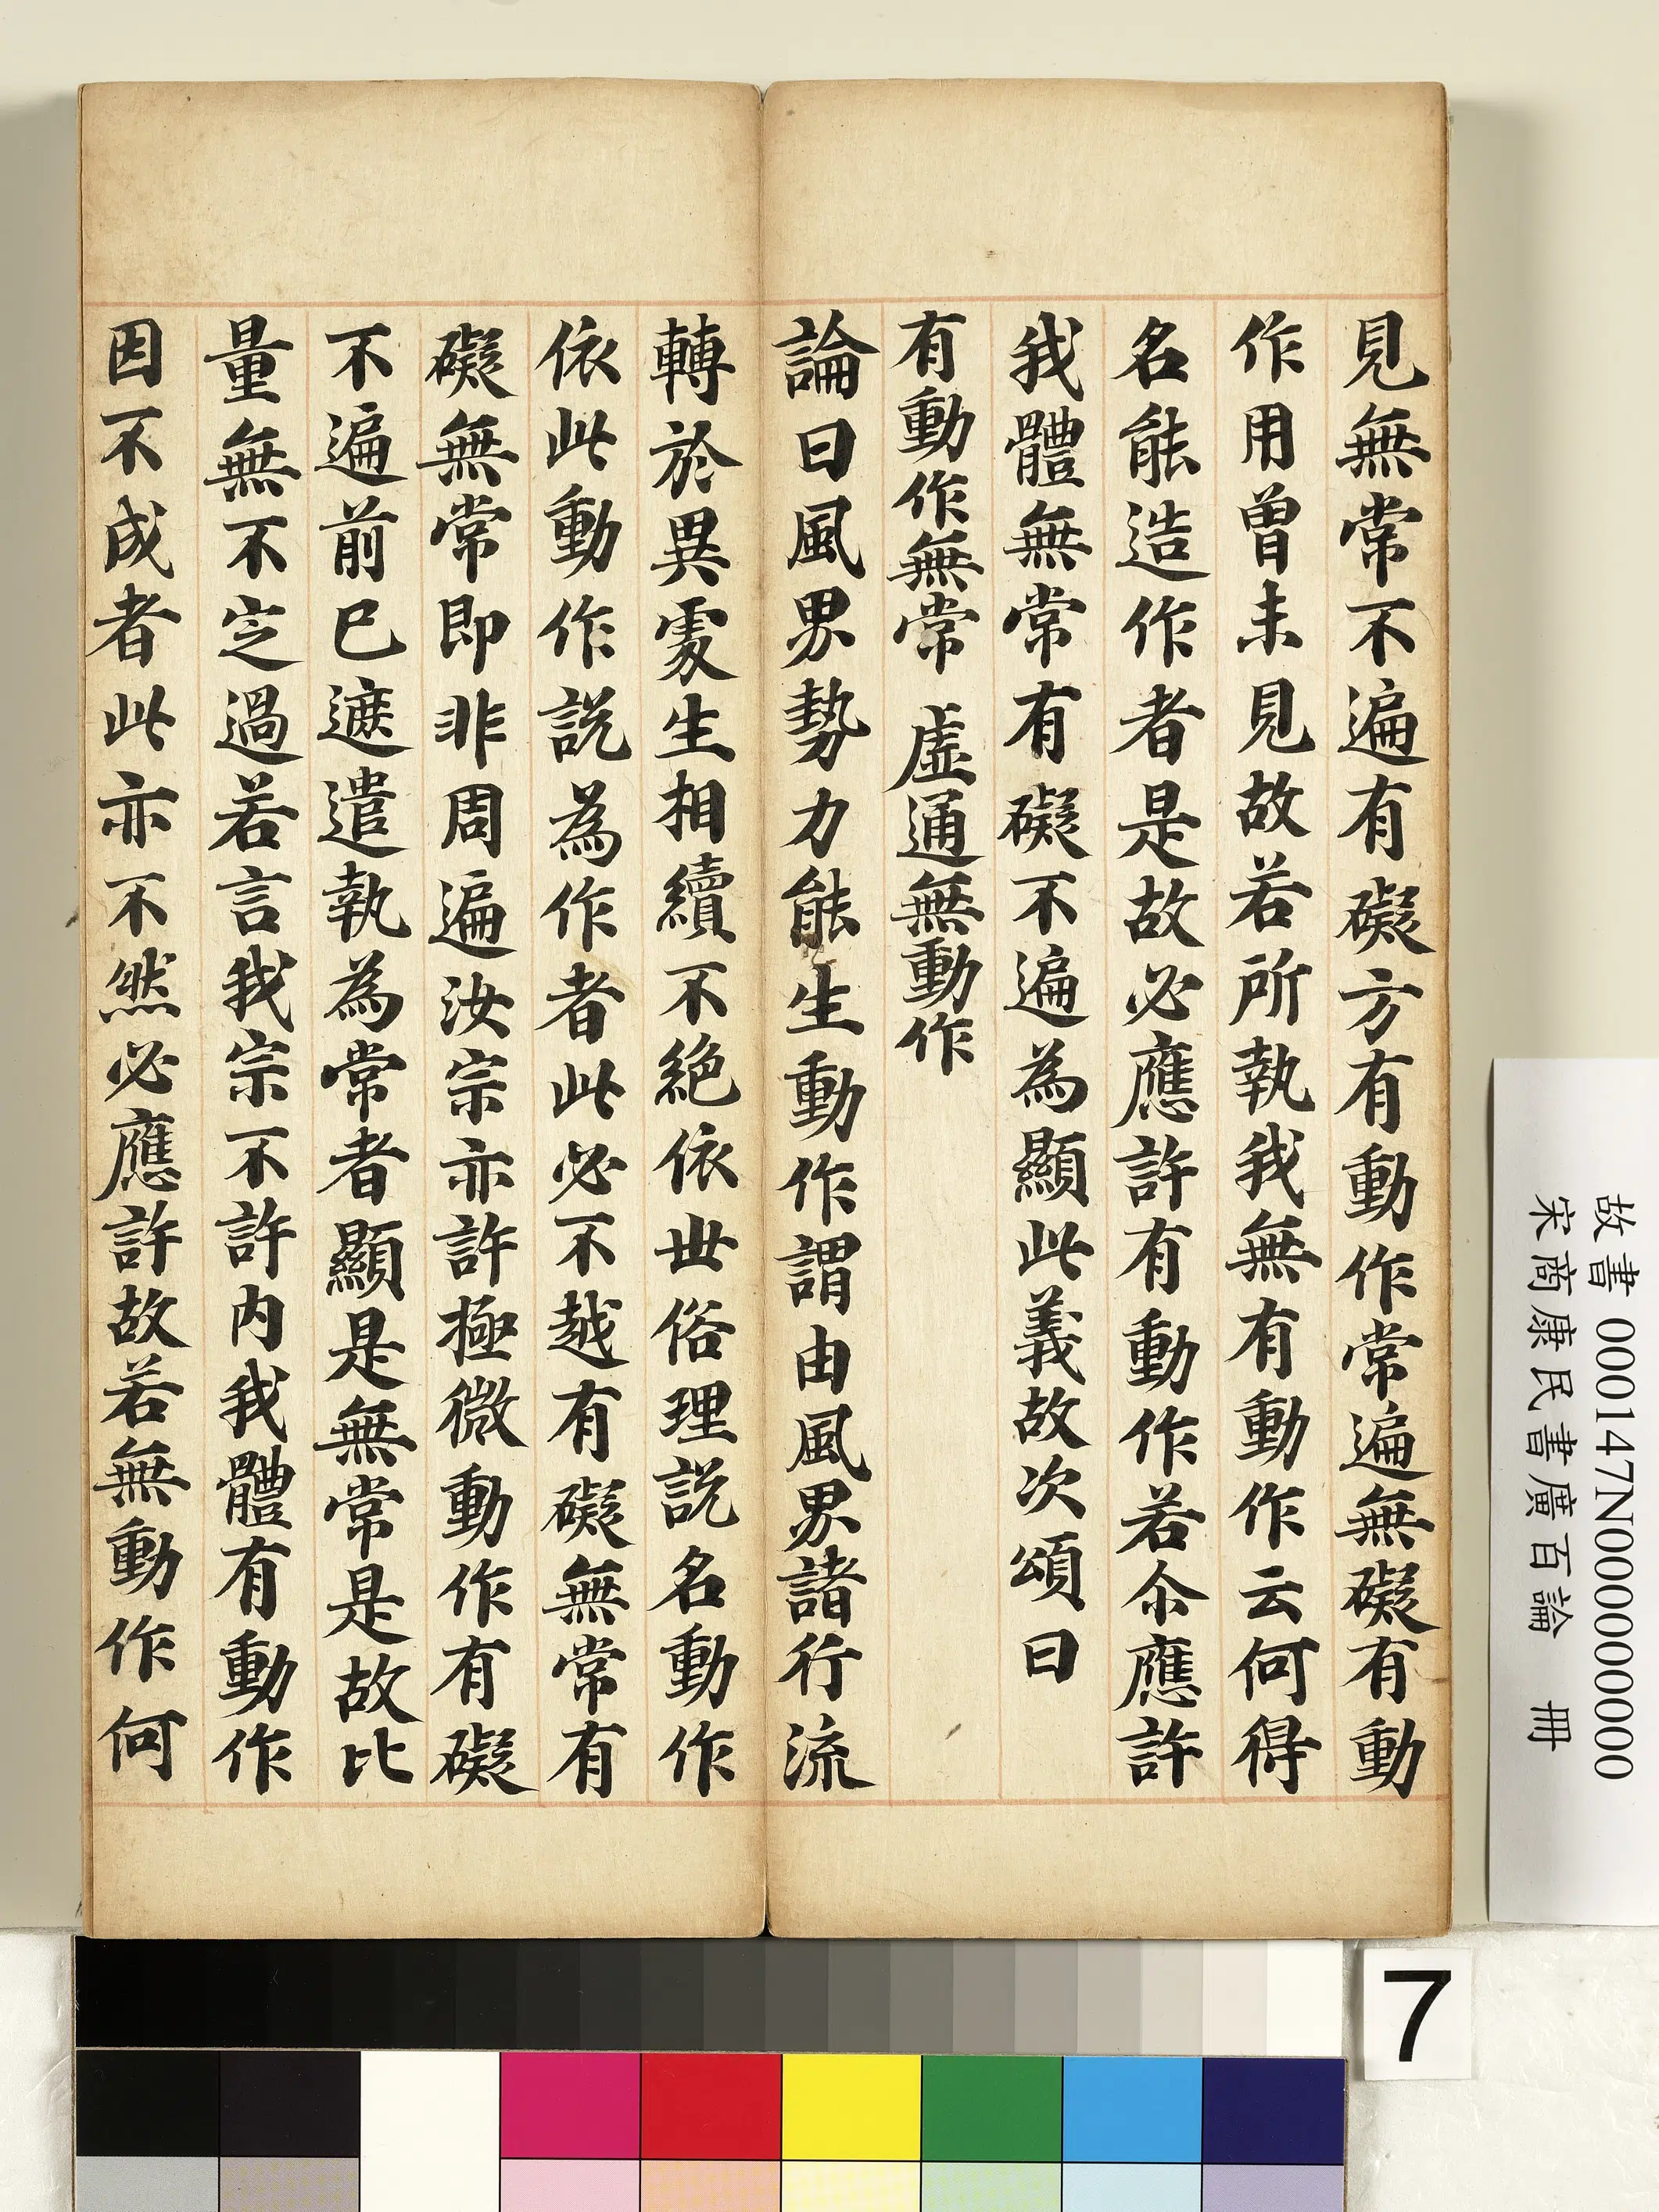 見無常不遍有礙方有動作常遍無礙有動
作用曾未見故若所執我無有動作云何得
名能造作者是故必應許有動作若尒應許
我體無常有礙不遍為顯此義故次頌曰
有動作無常　虛通無動作
論曰風界勢力能生動作謂由風界諸行流
轉於異處生相續不絕依世俗理說名動作
依此動作說為作者此必不越有礙無常有
礙無常即非周遍汝宗亦許極微動作有礙
不遍前已遮遣執為常者顯是無常是故比
量無不定過若言我宗不許內我體有動作
因不成者此亦不然必應許故若無動作何
故書 000147N000000000
宋商康民書廣百論　冊
7